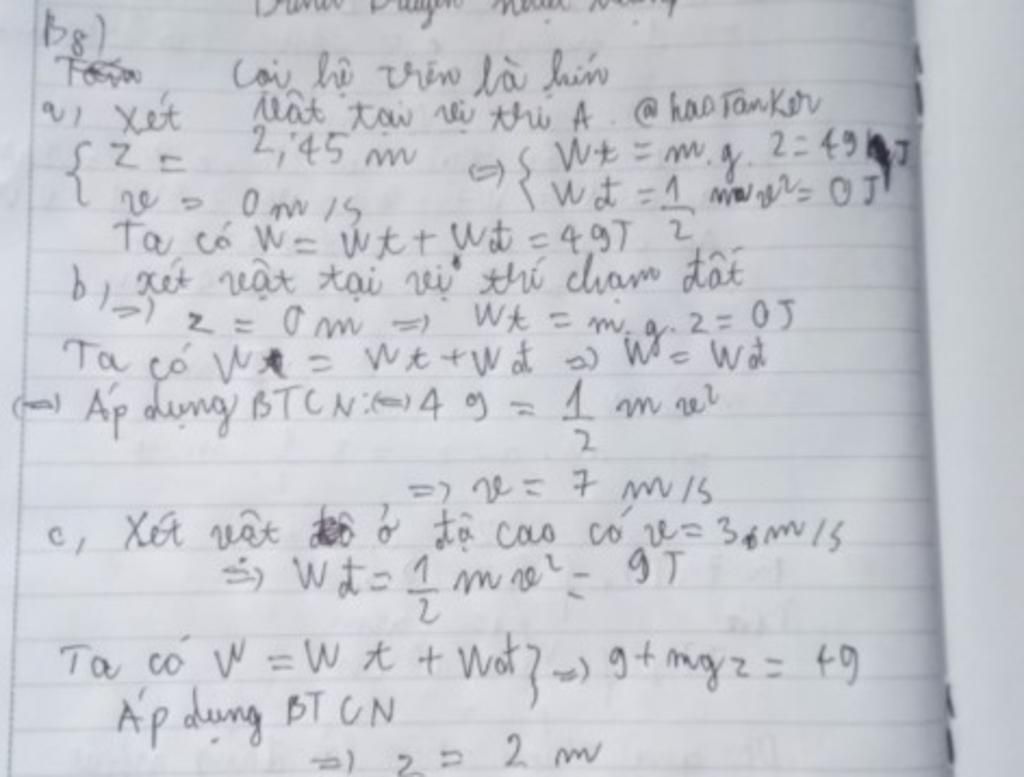 B8)
Coi hệ trên là kín
a, Xét vật tại vị thí A @haoTanKer
{ z = 2,45 m ⇔ { Wt = m.g.z = 49 J
v = 0 m/s Wđ = 1/2 mv² = 0 J
Ta có W = Wt + Wđ = 49J
b, xét vật tại vị thí chạm đất
=> z = 0 m => Wt = m.g.z = 0J
Ta có W = Wt + Wđ => W = Wđ
(=> Áp dụng BTCN: <=> 49 = 1/2 mv²
=> v = 7 m/s
c, Xét vật ở độ cao có v = 3 m/s
=> Wđ = 1/2 mv² = 9J
Ta có W = Wt + Wđ } => 9 + mgz = 49
Áp dụng BTCN
=> z = 2 m